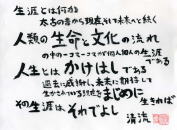 生涯とは何か
太古の昔から現在そして未来へと続く
人類の生命と文化の流れ
の中の一コマ一コマが個人個人の生涯
である
人生とはかけはしである
過去に感謝し、未来に期待して
生かされている現在をまじめに
生きれば
その生涯は、それでよし
清流